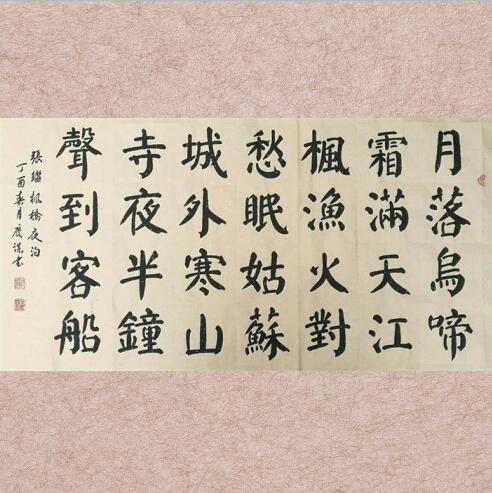 月落烏啼
霜滿天江
楓漁火對
愁眠姑蘇
城外寒山
寺夜半鐘
聲到客船
張繼楓橋夜泊
丁酉春月